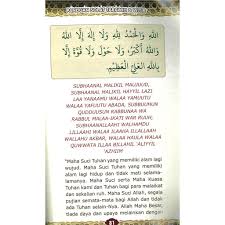 وَاللهِ وَالْحَمْدُ لِلَّهِ وَلَا إِلَهَ إِلَّا اللهُ
وَاللهُ أَكْبَرُ، وَلَا حَوْلَ وَلَا قُوَّةَ إِلَّا
بِاللهِ الْعَلِيِّ الْعَظِيْمِ.
SUBHAANAL MALIKIL MAUJUUD,
SUBHAANAL MALIKIL HAYYIL LAZI
LAA YANAAMU WALAA YAMUUTU
WALAA YAFUUTU ABADA, SUBBUUHUN
QUDDUUSUN RABBUNAA WA
RABBUL MALAA-IKATI WAR RUUH,
SUBHAANALLAAHI WALHAMDU
LILLAAHI WALAA ILAAHA ILLALLAAH
WALLAHU AKBAR, WALAA HAULA WALAA
QUWWATA ILLAA BILLAHIL 'ALIYYIL
'AZHIIM
"Maha Suci Tuhan yang memiliki alam lagi
wujud. Maha Suci Tuhan yang memiliki
alam lagi hidup dan tidak mati selama-
lamanya. Maha Suci serta Maha Kuasa
Tuhan kami dan Tuhan bagi para malaikat
dan sekalian ruh. Maha Suci Allah, segala
pujian semata-mata bagi Allah dan tidak
ada Tuhan selain-Nya. Allah Maha Besar,
tiada daya dan upaya melainkan dengan
81